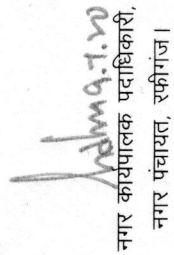 नगर कार्यपालक पदाधिकारी,
नगर पंचायत, रफीगंज।